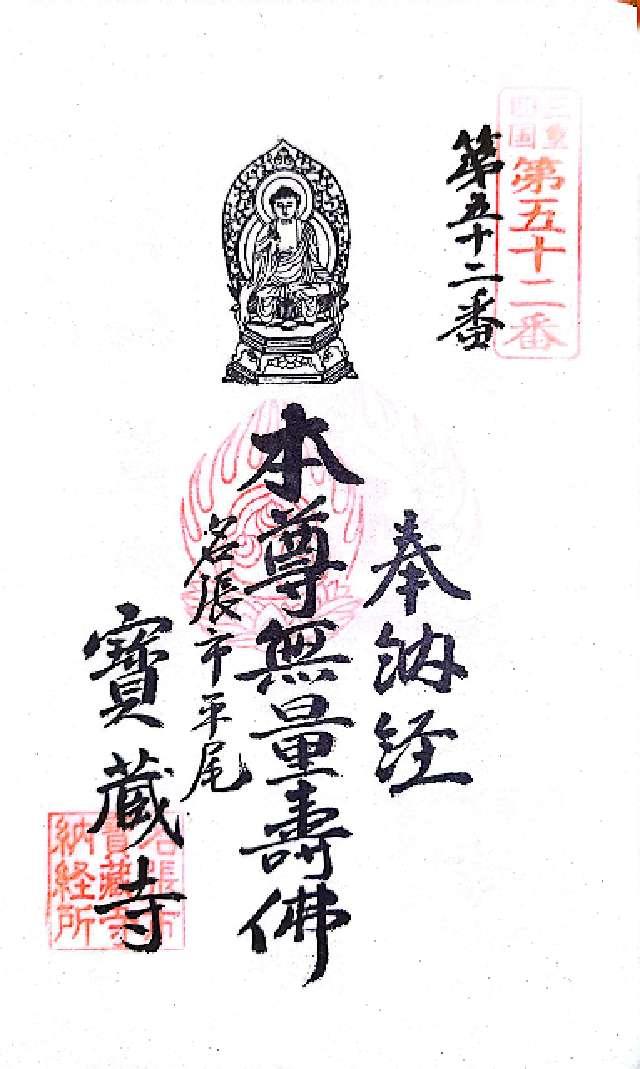 三重
四国
第五十二番
第五十二番
奉納経
本尊無量壽佛
名張市平尾
寶蔵寺
名張市
寶蔵寺
納経所